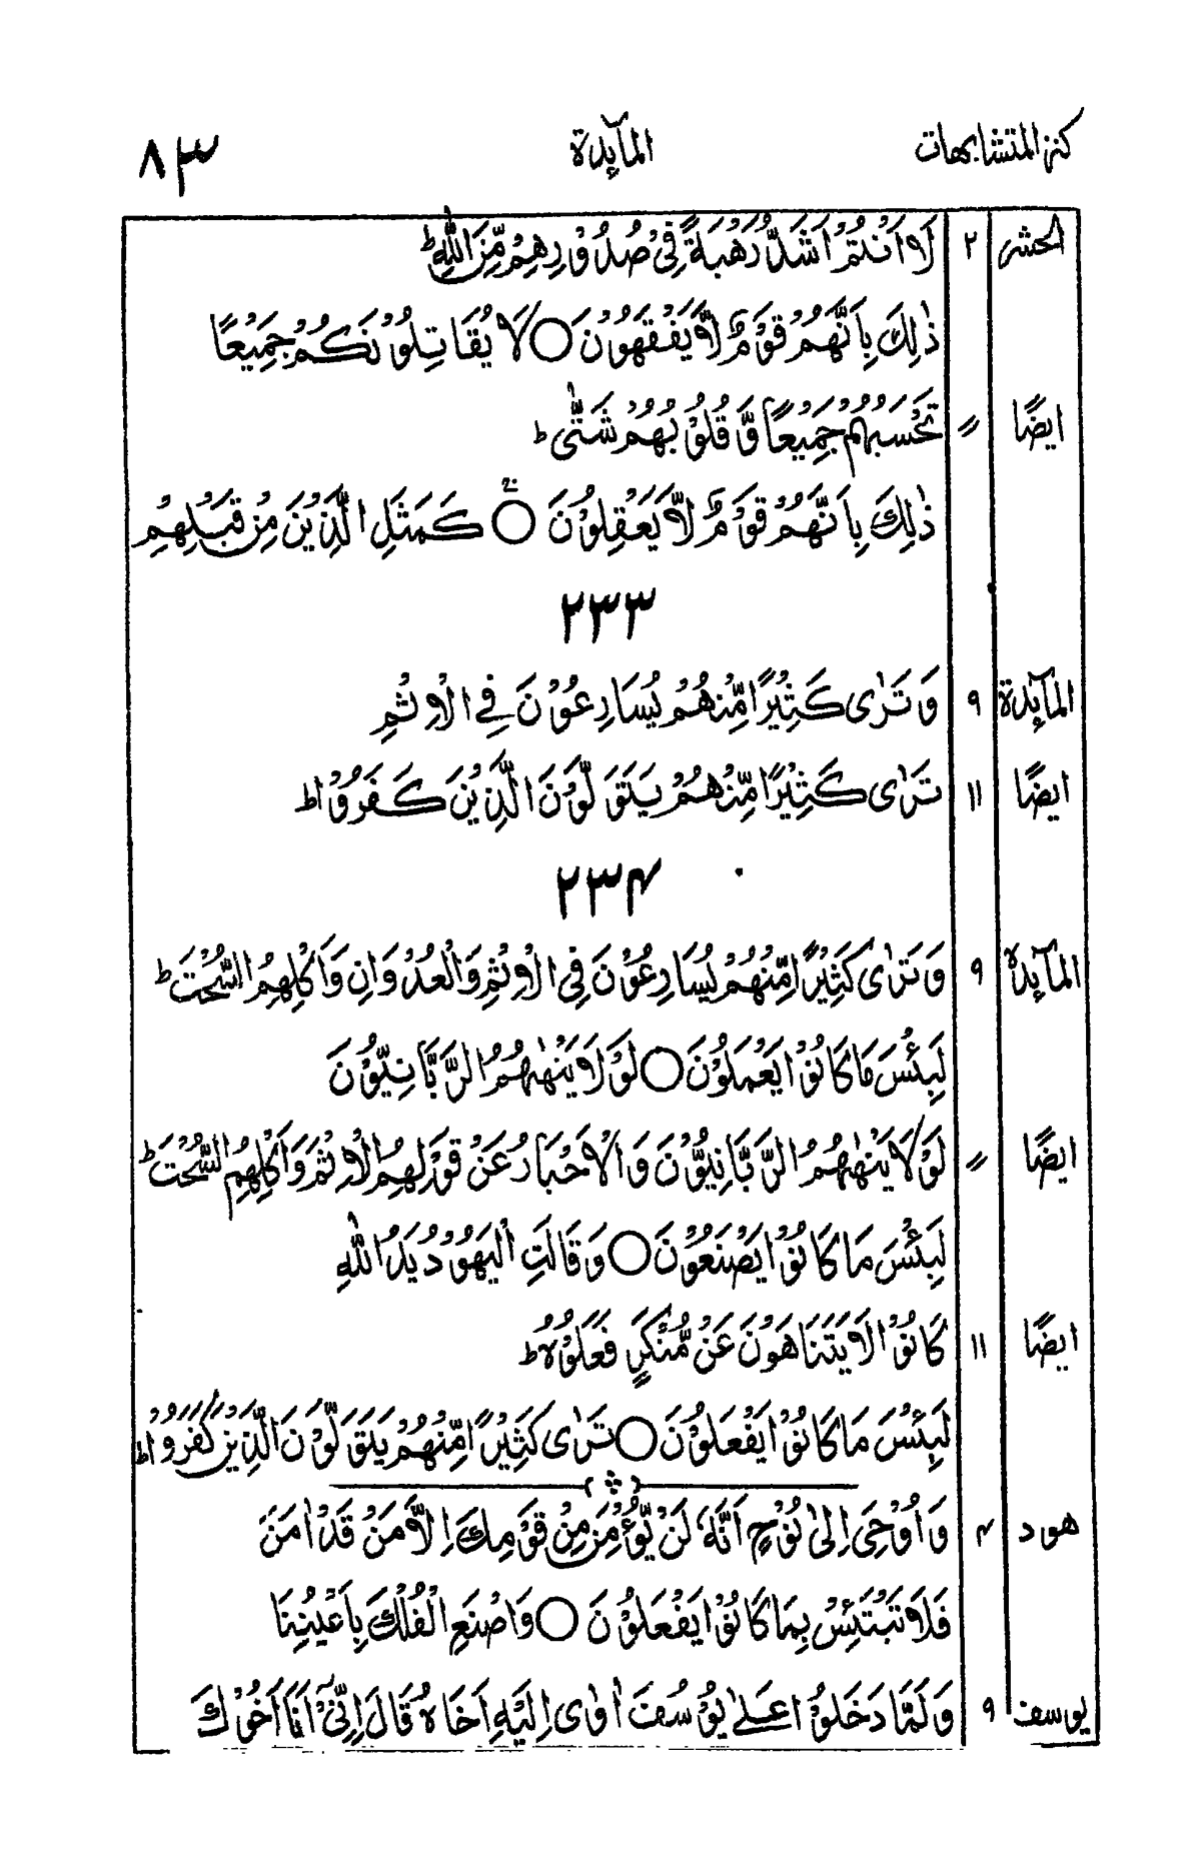 كنز المتشابهات المآئدة ۸۳
الحشر ۲ لَاَ۟اَنْتُمْ اَشَدُّ رَهْبَةً فِیْ صُدُوْرِهِمْ مِّنَ اللّٰهِؕ
ذٰلِكَ بِاَنَّهُمْ قَوْمٌ لَّا یَفْقَهُوْنَ ○ لَا یُقَاتِلُوْنَكُمْ جَمِیْعًا
ایضًا 〃 تَحْسَبُهُمْ جَمِیْعًا وَّ قُلُوْبُهُمْ شَتّٰیؕ
ذٰلِكَ بِاَنَّهُمْ قَوْمٌ لَّا یَعْقِلُوْنَ ○ۚ كَمَثَلِ الَّذِیْنَ مِنْ قَبْلِهِمْ
۲۳۳
المآئدة ۹ وَ تَرٰی كَثِیْرًا مِّنْهُمْ یُسَارِعُوْنَ فِی الْاِثْمِ
ایضًا ۱۱ تَرٰی كَثِیْرًا مِّنْهُمْ یَتَوَلَّوْنَ الَّذِیْنَ كَفَرُوْاؕ
۲۳۴
المآئدة ۹ وَ تَرٰی كَثِیْرًا مِّنْهُمْ یُسَارِعُوْنَ فِی الْاِثْمِ وَ الْعُدْوَانِ وَ اَكْلِهِمُ السُّحْتَؕ
لَبِئْسَ مَا كَانُوْا یَعْمَلُوْنَ ○ لَوْ لَا یَنْهٰهُمُ الرَّبّٰنِیُّوْنَ
ایضًا 〃 لَوْ لَا یَنْهٰهُمُ الرَّبَّانِیُّوْنَ وَ الْاَحْبَارُ عَنْ قَوْلِهِمُ الْاِثْمَ وَ اَكْلِهِمُ السُّحْتَؕ
لَبِئْسَ مَا كَانُوْا یَصْنَعُوْنَ ○ وَ قَالَتِ الْیَهُوْدُ یَدُ اللّٰهِ
ایضًا ۱۱ كَانُوْا لَا یَتَنَاهَوْنَ عَنْ مُّنْكَرٍ فَعَلُوْهُؕ
لَبِئْسَ مَا كَانُوْا یَفْعَلُوْنَ ○ تَرٰی كَثِیْرًا مِّنْهُمْ یَتَوَلَّوْنَ الَّذِیْنَ كَفَرُوْاؕ
هود ۴ وَ اُوْحِیَ اِلٰی نُوْحٍ اَنَّهٗ لَنْ یُّؤْمِنَ مِنْ قَوْمِكَ اِلَّا مَنْ قَدْ اٰمَنَ
فَلَا تَبْتَئِسْ بِمَا كَانُوْا یَفْعَلُوْنَ ○ وَ اصْنَعِ الْفُلْكَ بِاَعْیُنِنَا
یوسف ۹ وَ لَمَّا دَخَلُوْا عَلٰی یُوْسُفَ اٰوٰۤی اِلَیْهِ اَخَاهُ قَالَ اِنِّیْۤ اَنَا اَخُوْكَ